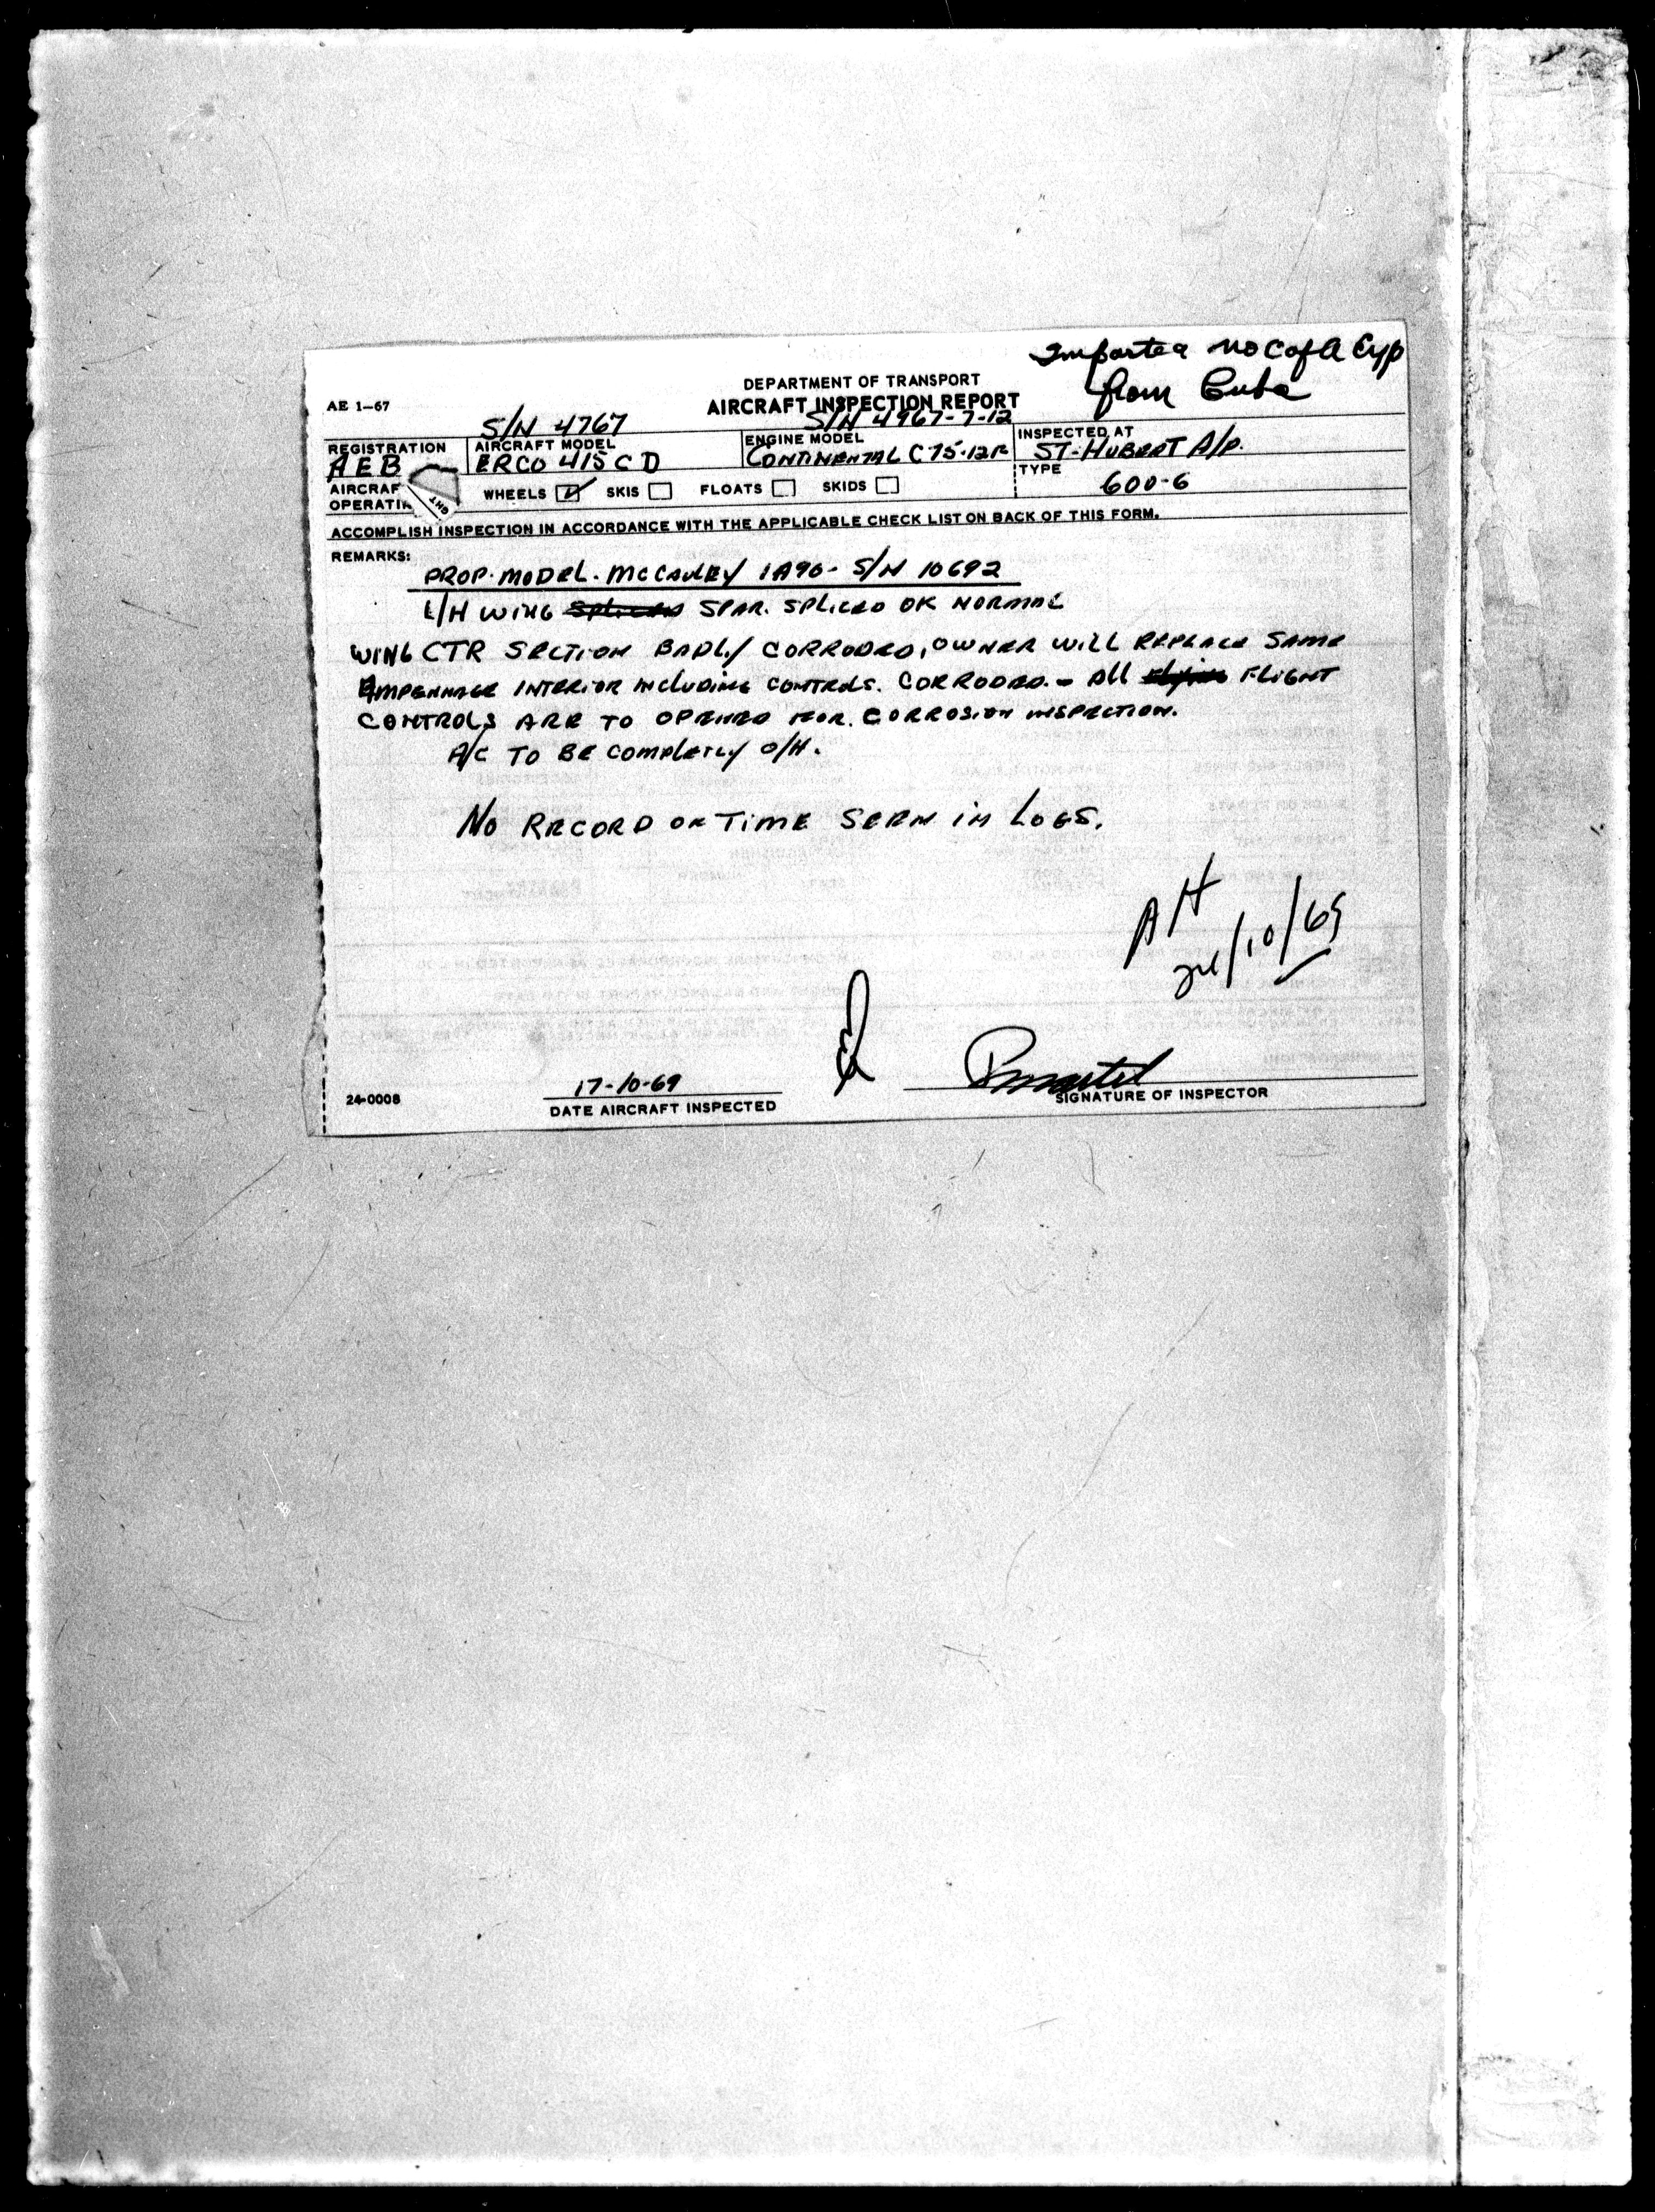 Imported no C of A Exp
from Cuba
DEPARTMENT OF TRANSPORT
AE 1-67
AIRCRAFT INSPECTION REPORT
S/N 4767
S/N 4967-7-12
REGISTRATION
AEB
AIRCRAFT MODEL
ERCO 415 CD
ENGINE MODEL
CONTINENTAL C75-12F
INSPECTED AT
ST-HUBERT A/P.
AIRCRAF
OPERATIN
WHEELS SKIS FLOATS SKIDS
TYPE
600-6
ACCOMPLISH INSPECTION IN ACCORDANCE WITH THE APPLICABLE CHECK LIST ON BACK OF THIS FORM.
REMARKS:
PROP. MODEL. MCCAULEY 1A90- S/N 10692
L/H WING Spliced SPAR. SPLICED OK NORMAL
WING CTR SECTION BADLY CORRODED, OWNER WILL REPLACE SAME
EMPENNAGE INTERIOR INCLUDING CONTROLS. CORRODED. - All flying FLIGHT
CONTROLS ARE TO OPENED FOR. CORROSION INSPECTION.
A/C TO BE COMPLETLY O/H.
NO RECORD OF TIME SEEN IN LOGS.
AH
24/10/69
17-10-69
24-0008
DATE AIRCRAFT INSPECTED
SIGNATURE OF INSPECTOR